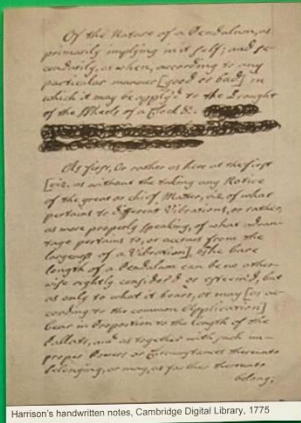 Of the Nature of a Pendulum, as
primarily implying in it self; and se-
condarily, as when, according to any
particular manner [good or bad] in
which it may be apply'd to the Draught
of the Wheels of a Clock &c.
As first, Or rather as here at the first
[viz. as without the taking any Notice
of the great or chief Matter, viz. of what
pertains to different Vibrations, or rather,
as more properly speaking, of what advan-
tage pertains to, or accrues from the
largeness of a Vibration] the bare
length of a Pendulum can be no other-
wise rightly consider'd or esteem'd, but
as only to what it bears, or may [as ac-
cording to the common Application]
bear in Proportion to the length of the
Pallats, and as together with such im-
proper Powers or Circumstances thereunto
belonging, or may, as farther thereunto
belong;
Harrison's handwritten notes, Cambridge Digital Library, 1775